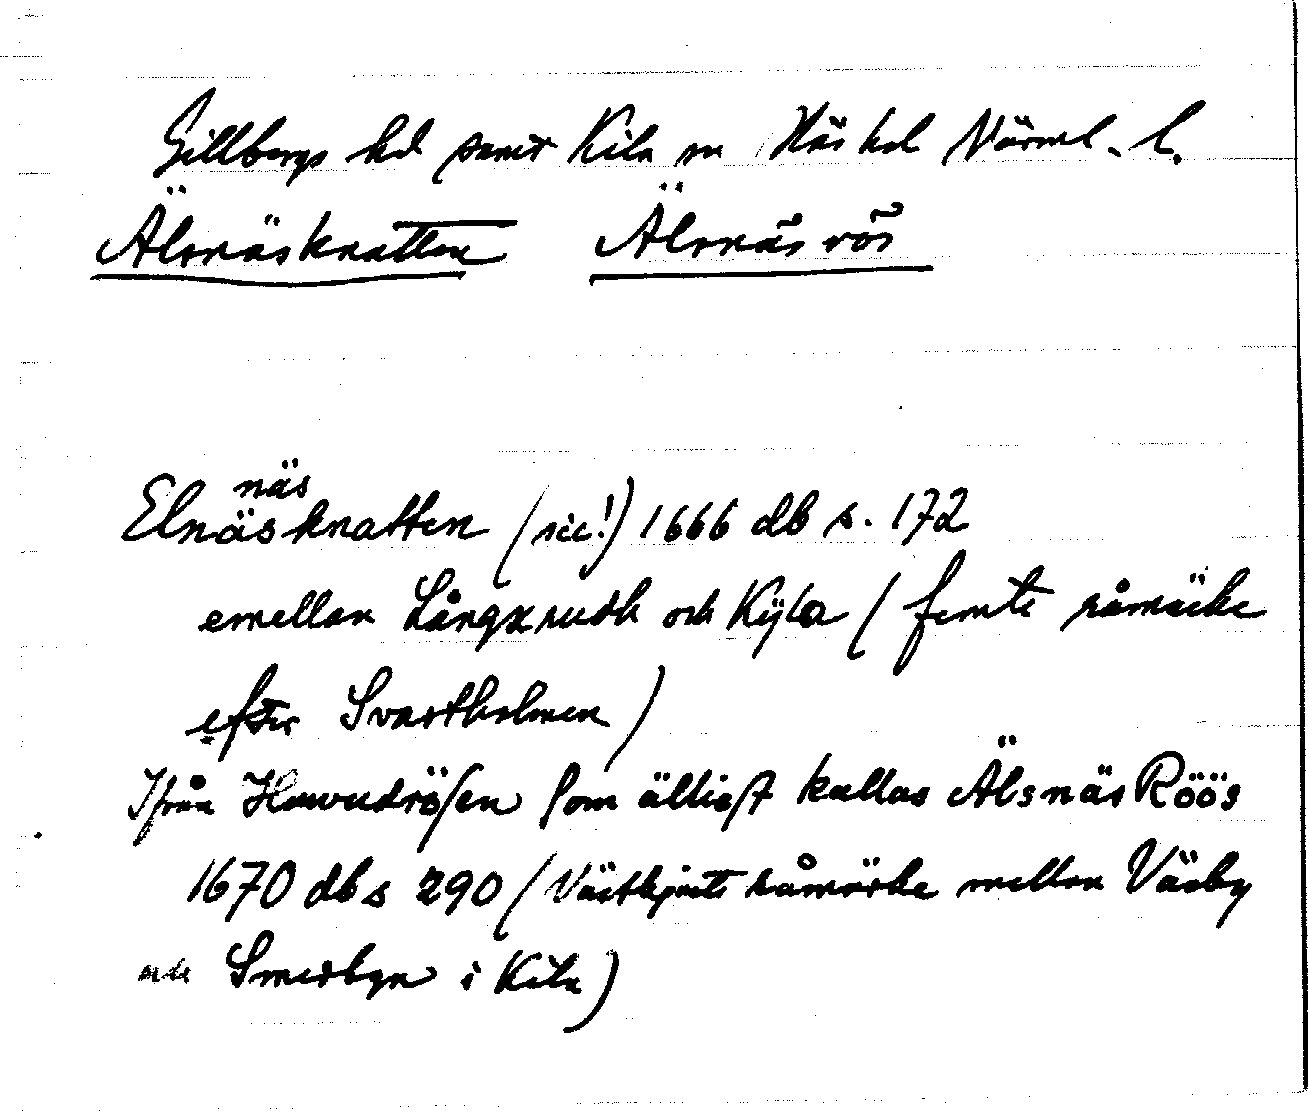 Gillbergs hd samt Kila sn Näs hd Värml. l.
Älsnäsknatten Älsnäs rös
näs
Elnäsknatten (sic!) 1666 db s. 172
emellan Långxrudh och Kÿla (femte råmärke
efter Svartholmen)
Ifrån Huwudrösen som älliest kallas Älsnäs Röös
1670 db s 290 ( råmärke mellan Väsby
och Smedbyn i Kila)